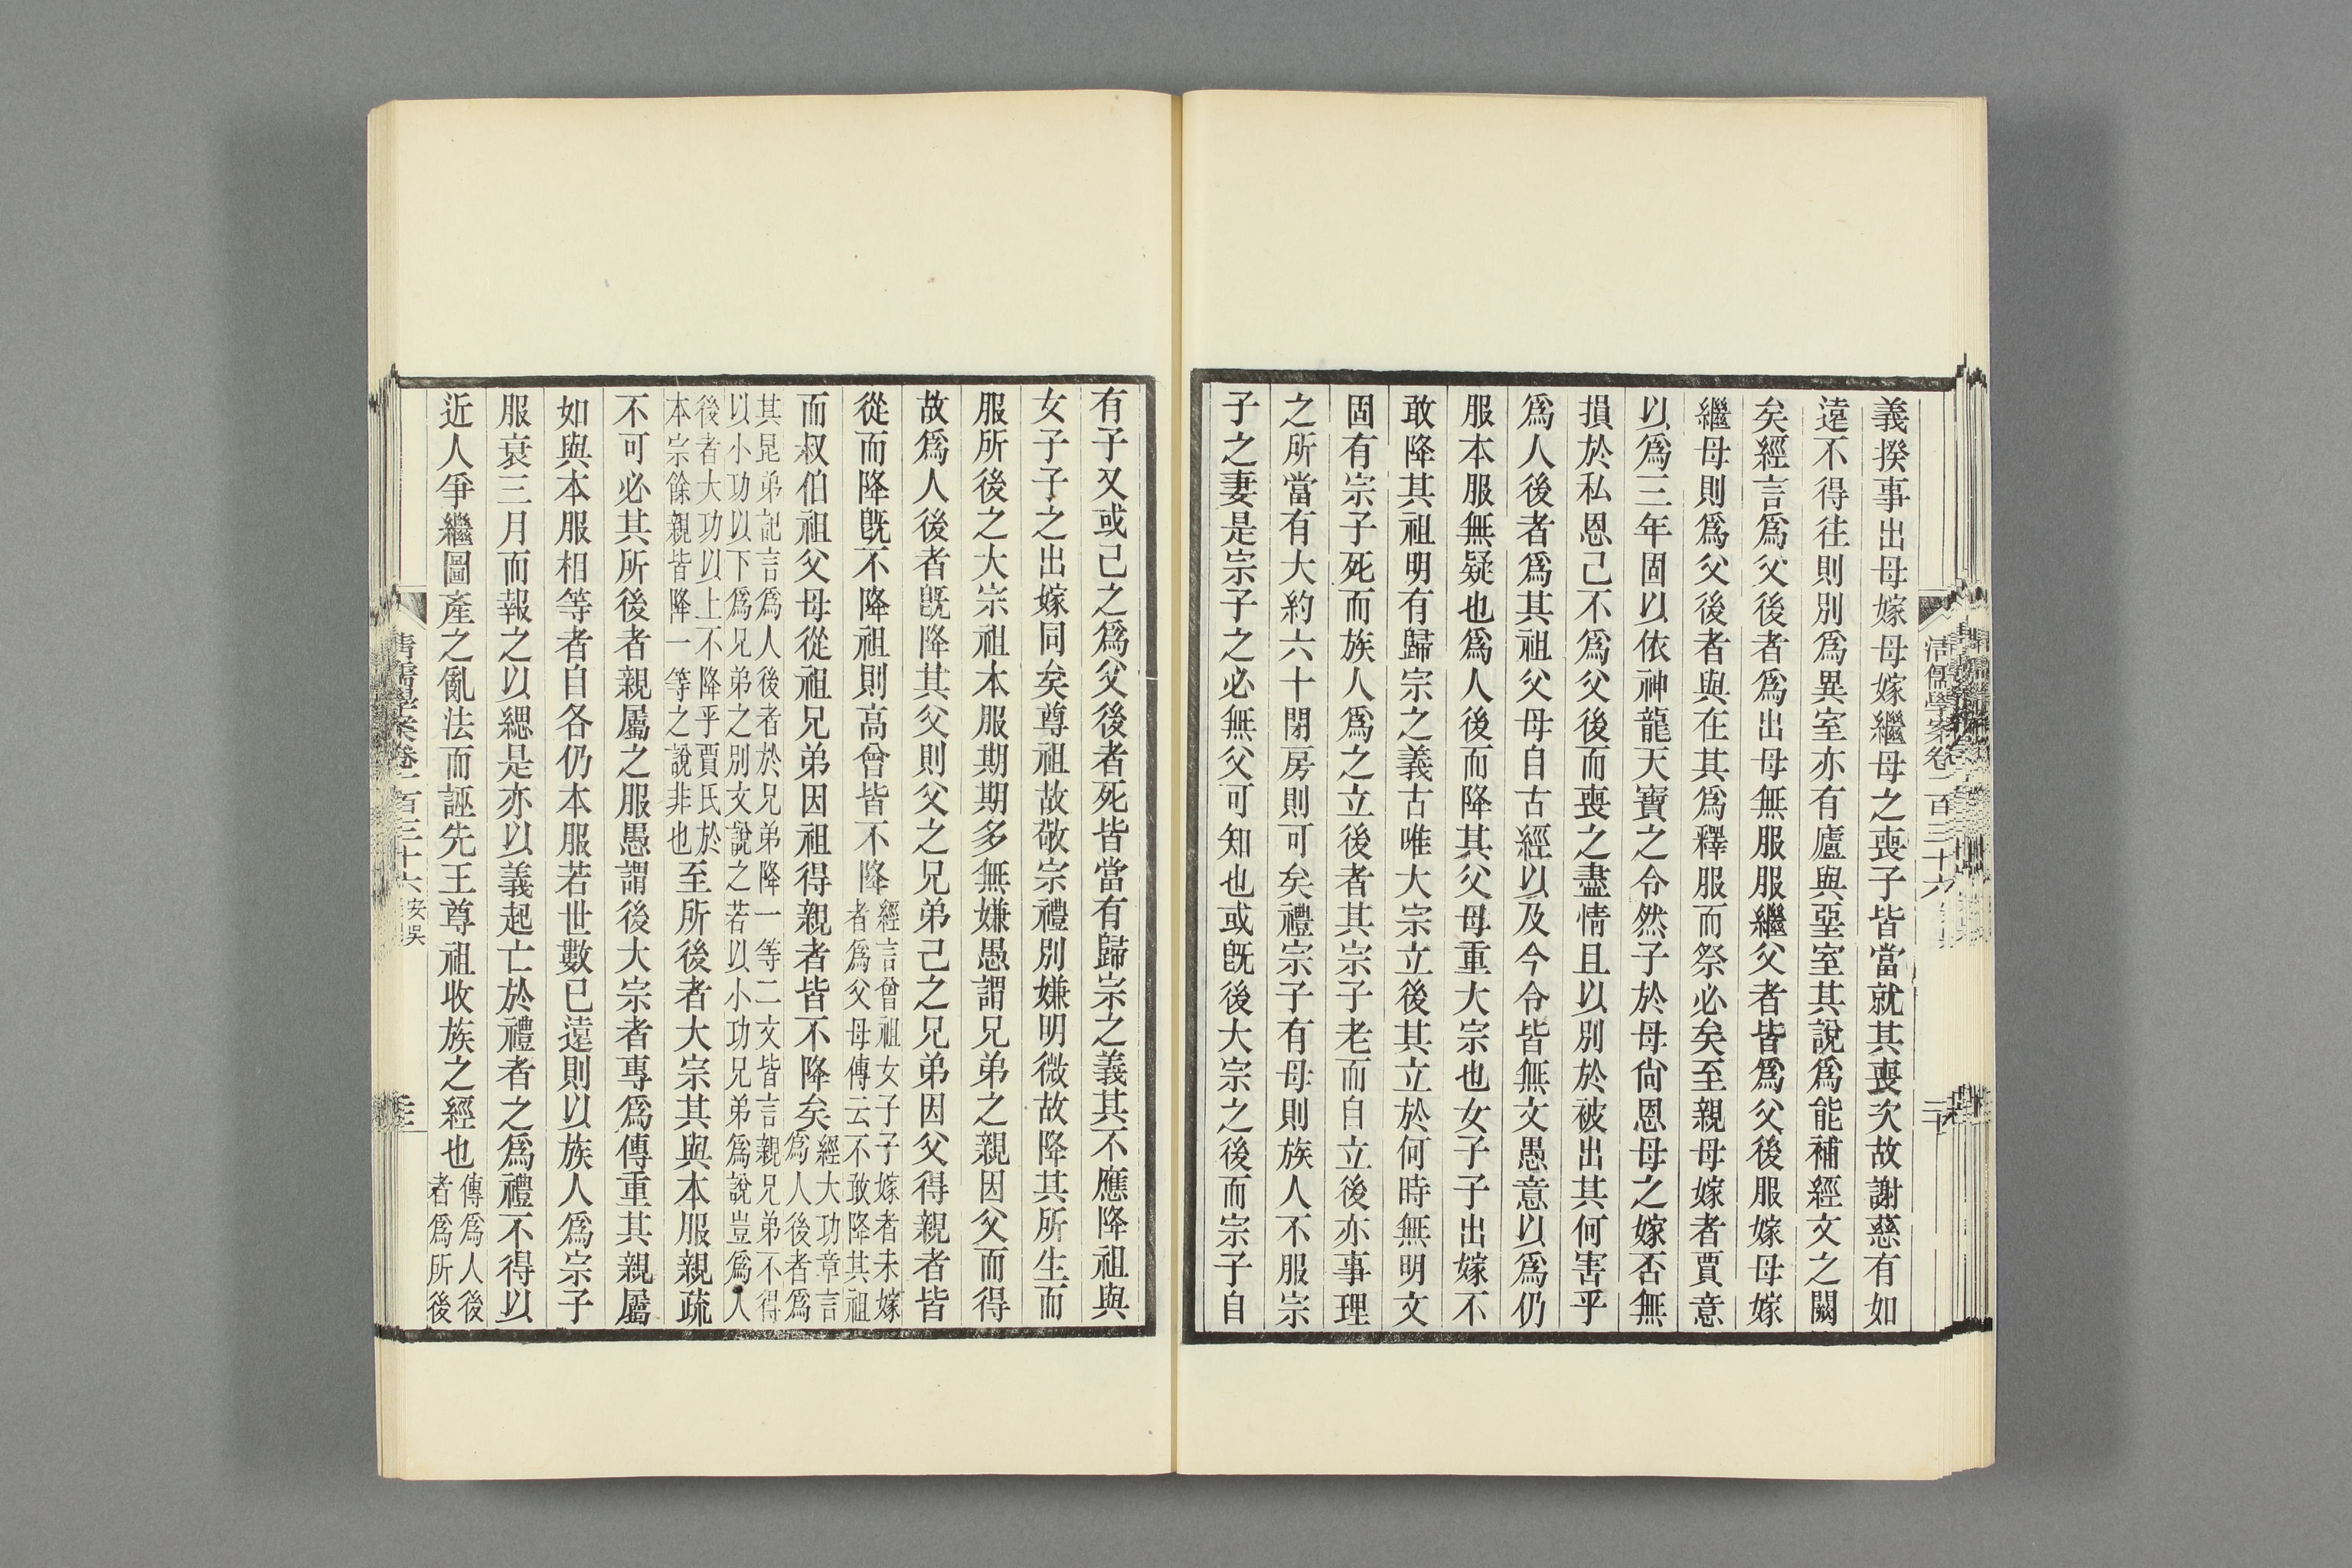 義揆事出母嫁母嫁繼母之喪子皆當就其喪次故謝慈有如
遠不得往則別爲異室亦有廬與堊室其說爲能補經文之闕
矣經言爲父後者爲出母無服服繼父者皆爲父後服嫁母嫁
繼母則爲父後者與在其爲釋服而祭必矣至親母嫁者賈意
以爲三年固以依神龍天寶之令然子於母尙恩母之嫁否無
損於私恩己不爲父後而喪之盡情且以別於被出其何害乎
爲人後者爲其祖父母自古經以及今令皆無文愚意以爲仍
服本服無疑也爲人後而降其父母重大宗也女子子出嫁不
敢降其祖明有歸宗之義古唯大宗立後其立於何時無明文
固有宗子死而族人爲之立後者其宗子老而自立後亦事理
之所當有大約六十閉房則可矣禮宗子有母則族人不服宗
子之妻是宗子之必無父可知也或旣後大宗之後而宗子自
有子又或己之爲父後者死皆當有歸宗之義其不應降祖與
女子子之出嫁同矣尊祖故敬宗禮別嫌明微故降其所生而
服所後之大宗祖本服期期多無嫌愚謂兄弟之親因父而得
故爲人後者旣降其父則父之兄弟己之兄弟因父得親者皆
從而降旣不降祖則高曾皆不降經言曾祖女子子嫁者未嫁
者爲父母傳云不敢降其祖
而叔伯祖父母從祖兄弟因祖得親者皆不降矣經大功章言
爲人後者爲
其昆弟記言爲人後者於兄弟降一等二文皆言親兄弟不得
以小功以下爲兄弟之別文說之若以小功兄弟爲說豈爲人
後者大功以上不降乎賈氏於
本宗餘親皆降一等之說非也至所後者大宗其與本服親疏
不可必其所後者親屬之服愚謂後大宗者專爲傳重其親屬
如與本服相等者自各仍本服若世數已遠則以族人爲宗子
服衰三月而報之以緦是亦以義起亡於禮者之爲禮不得以
近人爭繼圖產之亂法而誣先王尊祖收族之經也傳爲人後
者爲所後
清儒學案卷一百三十六
清儒學案卷一百三十六 安吳